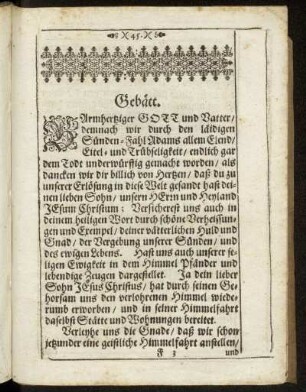 45.
Gebätt.
BArmhertziger GOTT und Vatter/
demnach wir durch den läidigen
Sünden-Fahl Adams allem Elend/
Eitel- und Trübseligkeit/ endlich gar
dem Todt underwürffig gemacht worden/ als
dancken wir dir billich von Hertzen/ daß du zu
unserer Erlösung in diese Welt gesandt hast dei-
nen lieben Sohn/ unsern HErrn und Heyland
JEsum Christum: Versicherest uns auch in
deinem heiligen Wort durch schöne Verheissun-
gen und Exempel/ deiner vätterlichen Huld und
Gnad/ der Vergebung unserer Sünden/ und
des ewigen Lebens. Hast uns auch unserer se-
ligen Ewigkeit in dem Himmel Pfänder und
lebendige Zeugen dargestellet. Ja dein lieber
Sohn JEsus Christus/ hat durch seinen Ge-
horsam uns den verlohrenen Himmel wiede-
rumb erworben/ und in seiner Himmelfahrt
daselbst Stätte und Wohnungen bereitet.
Verleyhe uns die Gnade/ daß wir schon
jetzunder eine geistliche Himmelfahrt anstellen/
F 3 und